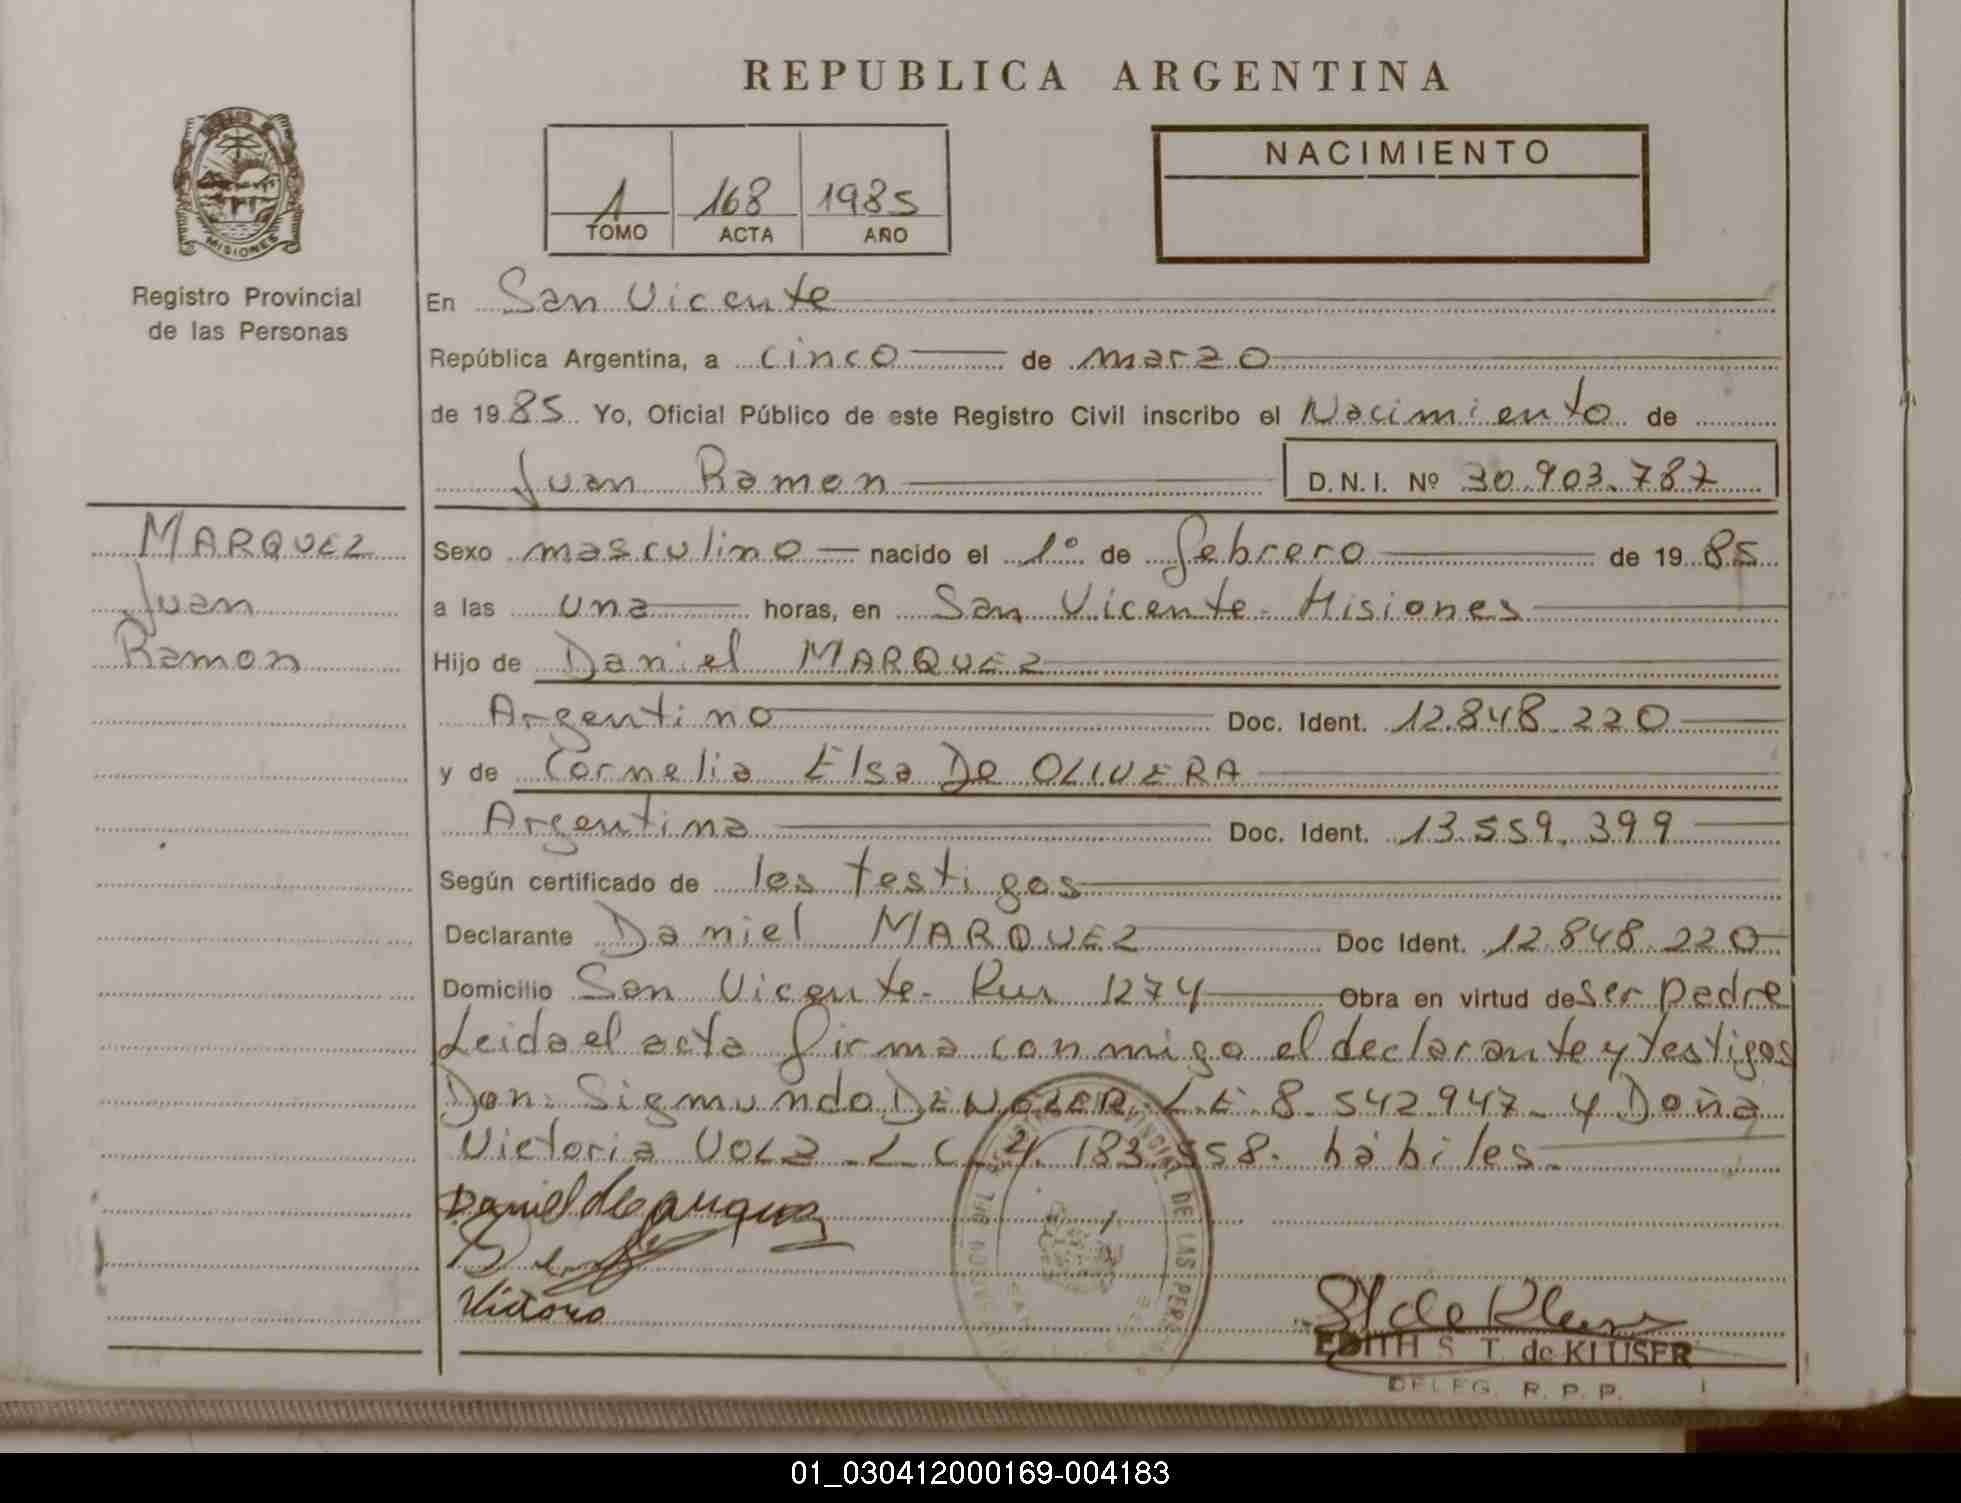 REPUBLICA ARGENTINA
1 168 1985
TOMO ACTA AÑO
NACIMIENTO
MISIONES
Registro Provincial
de las Personas
MARQUEZ
Juan
Ramon
En San Vicente
República Argentina, a cinco de marzo
de 1985 Yo, Oficial Público de este Registro Civil inscribo el Nacimiento de
Juan Ramon D.N.I. Nº 30.903.787
Sexo masculino nacido el 1º de febrero de 1985
a las una horas, en San Vicente - Misiones
Hijo de Daniel MARQUEZ
Argentino Doc. Ident. 12.848.220
y de Cornelia Elsa De OLIVERA
Argentina Doc. Ident. 13.559.399
Según certificado de los testigos
Declarante Daniel MARQUEZ Doc Ident. 12.848.220
Domicilio San Vicente - 1274 Obra en virtud de ser padre
Leida el acta firma conmigo el declarante y testigos
Don: Sigmundo L.E. 8.542.947 - y Doña
Victoria VOLZ - L.C. 183.558. hábiles -
Daniel Marquez
Victoria
EDITH S. T. de KLUSER
DELEG. R. P. P.
01_030412000169-004183